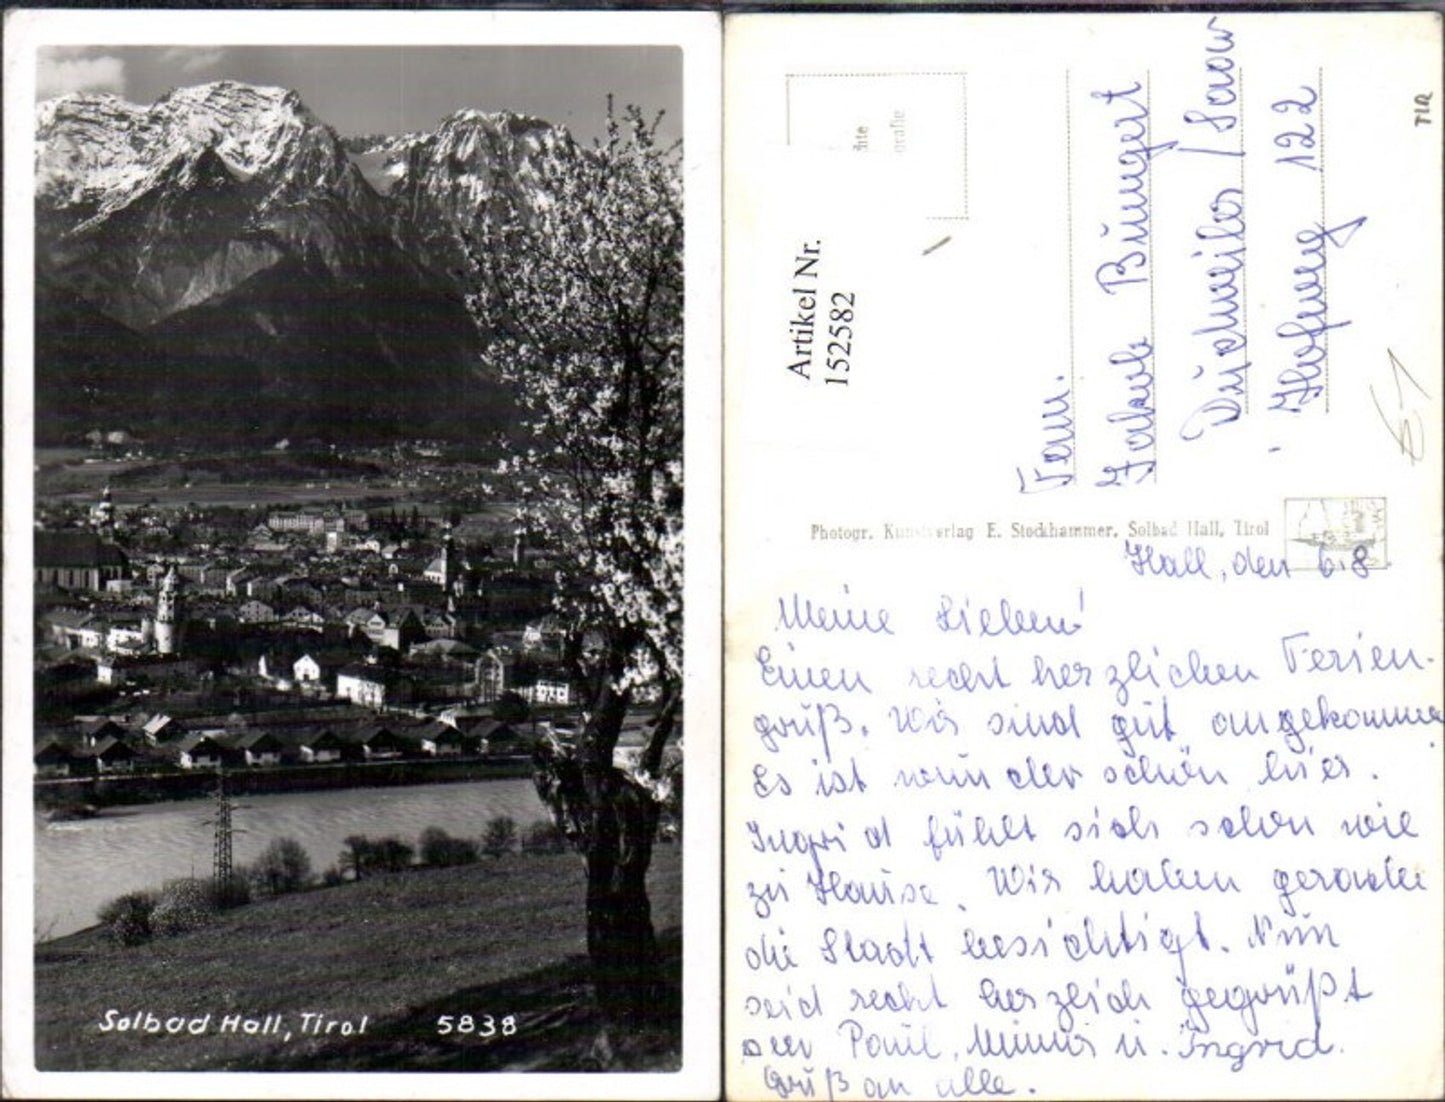 Solbad Hall, Tirol 5838
TIR
Artikel Nr.
152582
Fam.
Jakob Bungert
Dudweiler / Saar
Hofweg 122
Photogr. Kunstverlag E. Stockhammer, Solbad Hall, Tirol
Hall, den 6.8.
Meine Lieben!
Einen recht herzlichen Ferien-
gruß. Wir sind gut angekommen
Es ist wunderschön hier.
Ingrid fühlt sich schon wie
zu Hause. Wir haben gerade
die Stadt besichtigt. Nun
seid recht herzlich gegrüßt
von Paul, Minna u. Ingrid.
Gruß an alle.